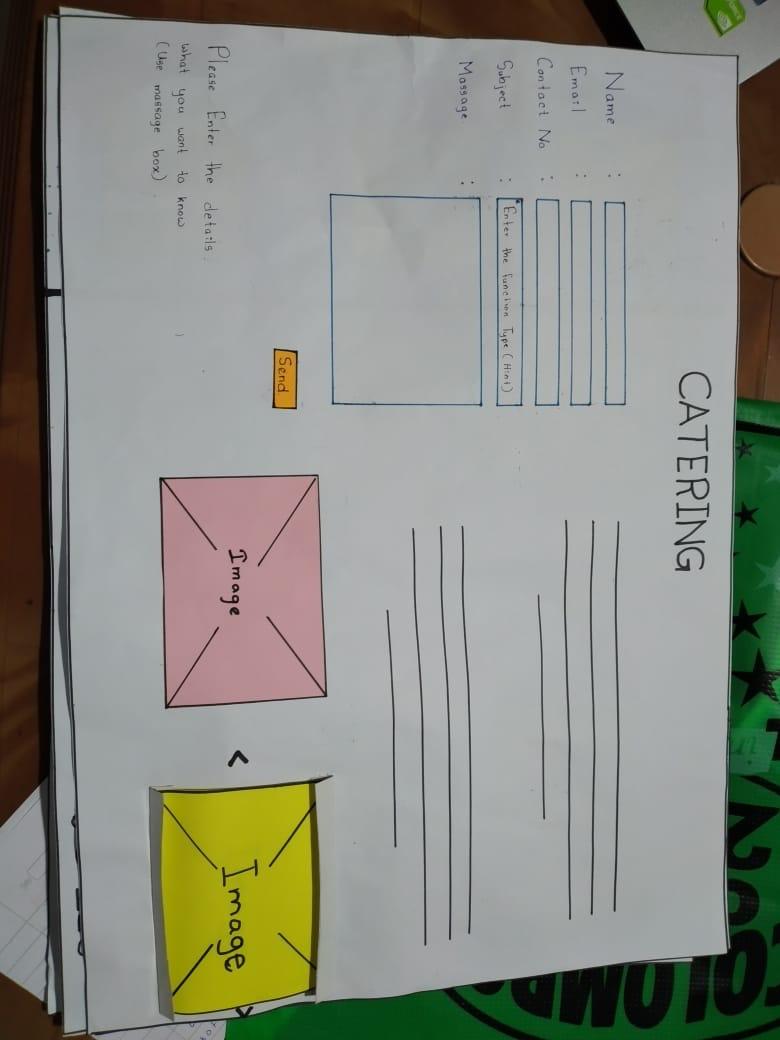 CATERING
Name :
Email :
Contact No :
Subject : Enter the function Type (Hint)
Massage :
Send
Please Enter the details.
what you want to know
(Use massage box)
Image
<
Image
>